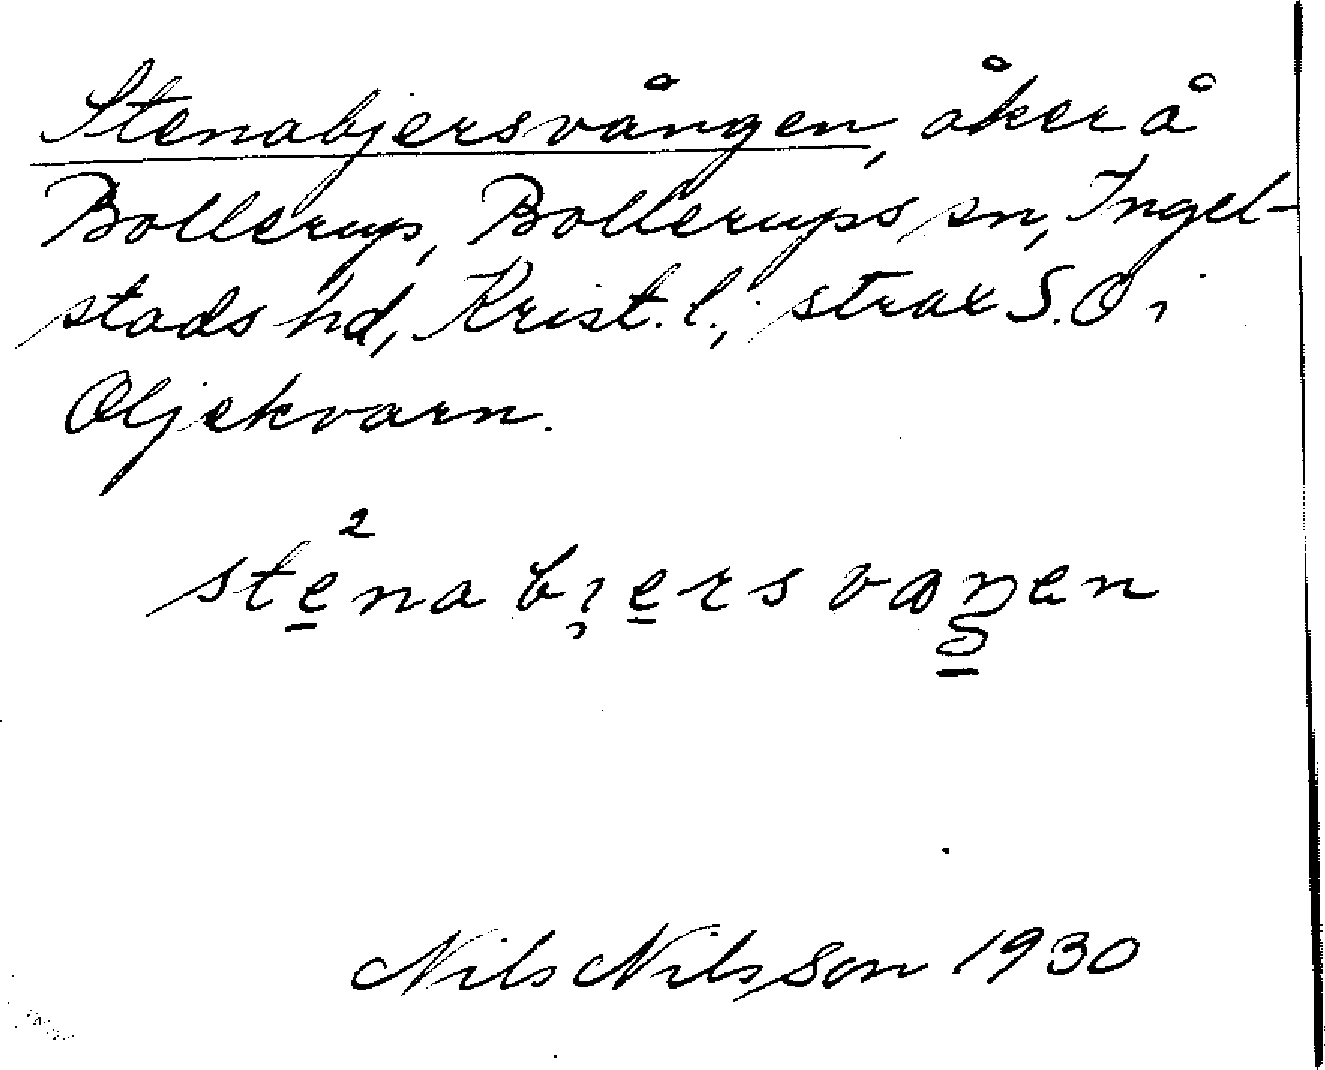 Stenabjersvången, åker å
Bollerup, Bollerups sn, Ingel-
stads hd, Krist. l., strax S. O i
Oljekvarn.
2
stenabi̯ersvaŋen
Nils Nilsson 1930